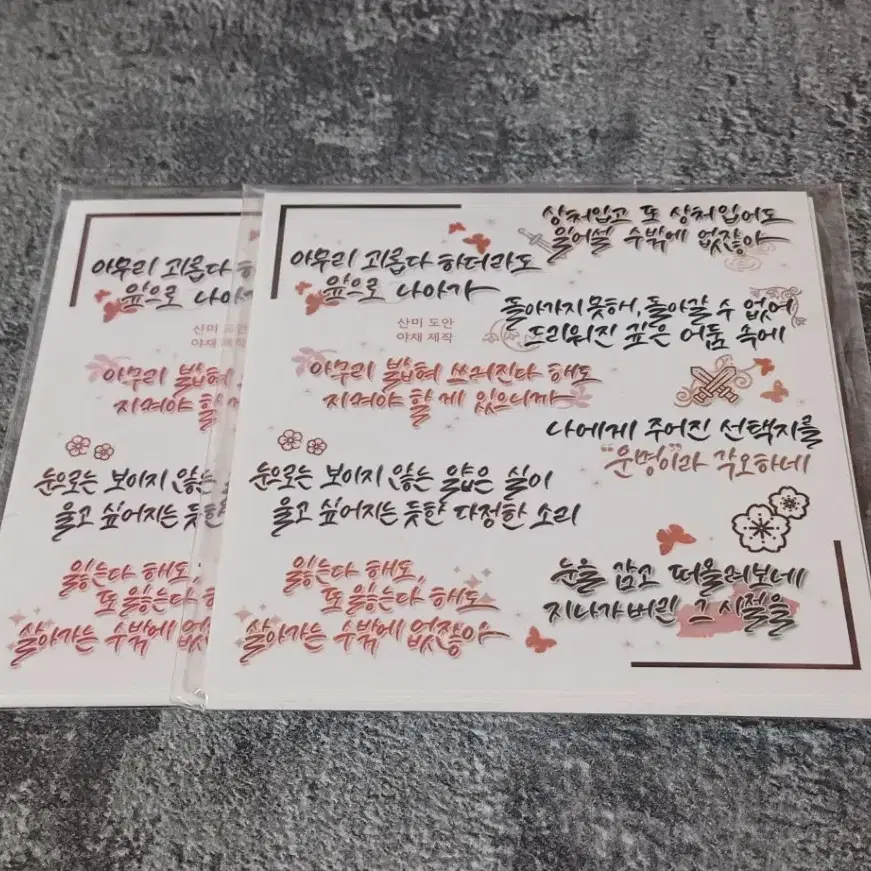 아무리 괴롭다 하
앞으로 나아가
산미 도안
야채 제작
아무리 밟혀
지켜야 할
눈으로는 보이지 않는
울고 싶어지는 듯한
잃는다 해도,
또 잃는다 하
살아가는 수밖에 없
아무리 괴롭다 하더라도
앞으로 나아가
산미 도안
야채 제작
아무리 밟혀 쓰러진다 해도
지켜야 할 게 있으니까
눈으로는 보이지 않는 얇은 실이
울고 싶어지는 듯한 다정한 소리
잃는다 해도,
또 잃는다 해도
살아가는 수밖에 없잖아
상처입고 또 상처입어도
일어설 수밖에 없잖아
돌아가지 못해, 돌아갈 수 없어
드리워진 깊은 어둠 속에
나에게 주어진 선택지를
"운명"이라 각오하네
눈을 감고 떠올려보네
지나가버린 그 시절을